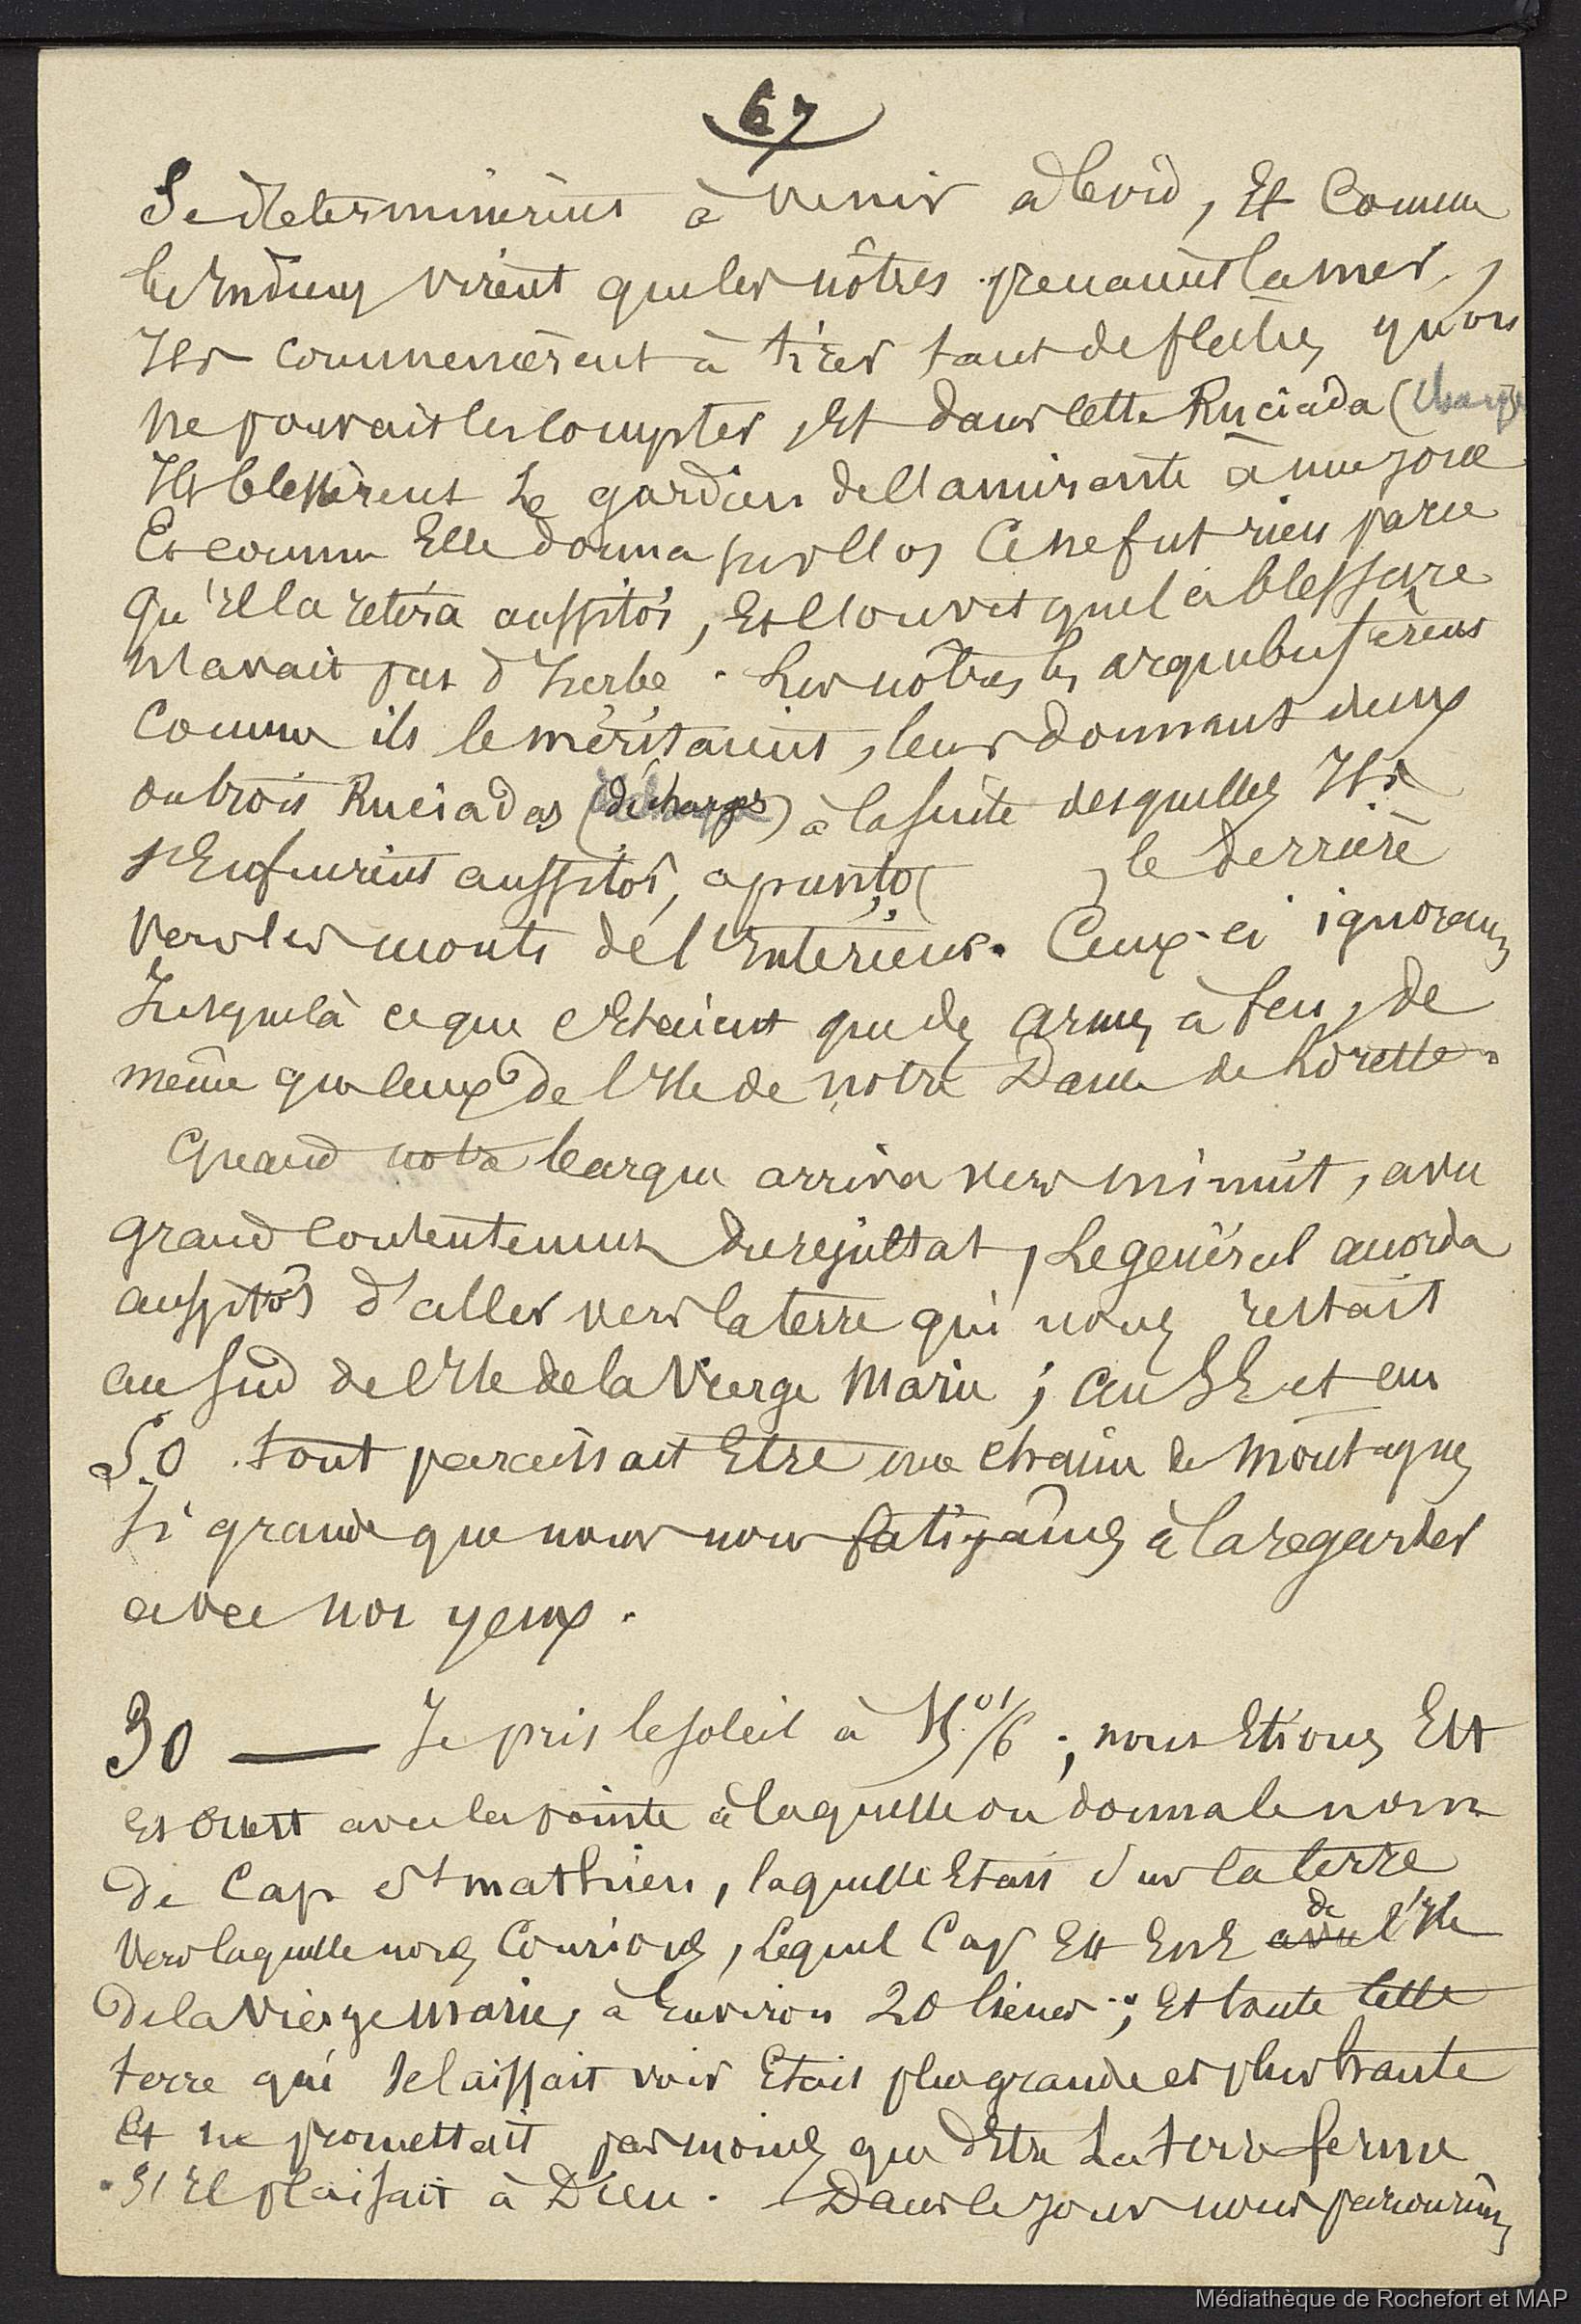 67
Se determinèrent à venir à bord, Et Comme
les Indiens virent que les nôtres prenaient la mer,
Ils commencèrent à tirer tant de fleches qu'on
ne pouvait les compter, Et dans cette Ruciada (charge
Ils blessèrent Le gardien de l'amirante à une joue
Et comme Elle donna sur l'os Ce ne fut rien parce
Qu'Il la retira aussitôt, Et l'on vit que la blessure
n'avait pas d'herbe. Les nôtres les arquebusèrent
Comme ils le méritaient, leur donnant deux
ou trois Ruciadas (décharges) à la suite desquelles Ils
s'Enfuirent aussitôt, apunto( ) le derrière
Vers les monts de l'Intérieur. Ceux-ci ignorant
Jusque là ce que c'Etaient que des armes à feu, de
même que ceux de l'Ile de notre Dame de Lorette.
Quand notre barque arriva vers minuit, avec
grand contentement du résultat, Le général accorda
aussitôt d'aller vers la terre qui nous restait
au Sud de l'Ile de la Vierge Marie ; au SE et au
S.O. tout paraissait Etre une chaine de montagnes
Si grande que nous nous fatigâmes à la regarder
avec nos yeux.
30 — Je pris le soleil à 1/6 ; nous Etions Est
Et Ouest avec la pointe à laquelle on donna le nom
de Cap St mathieu, laquelle Etait sur la terre
Vers laquelle nous Courions, Lequel Cap Est ENE avec de l'Ile
De la Vierge Marie, à Environ 20 lieues ; Et toute cette
terre qui se laissait voir Etait plus grande et plus haute
Et ne promettait pas moins que d'Etre La terre ferme
S'Il plaisait à Dieu. Dans le jour nous parcourûmes
Médiathèque de Rochefort et MAP